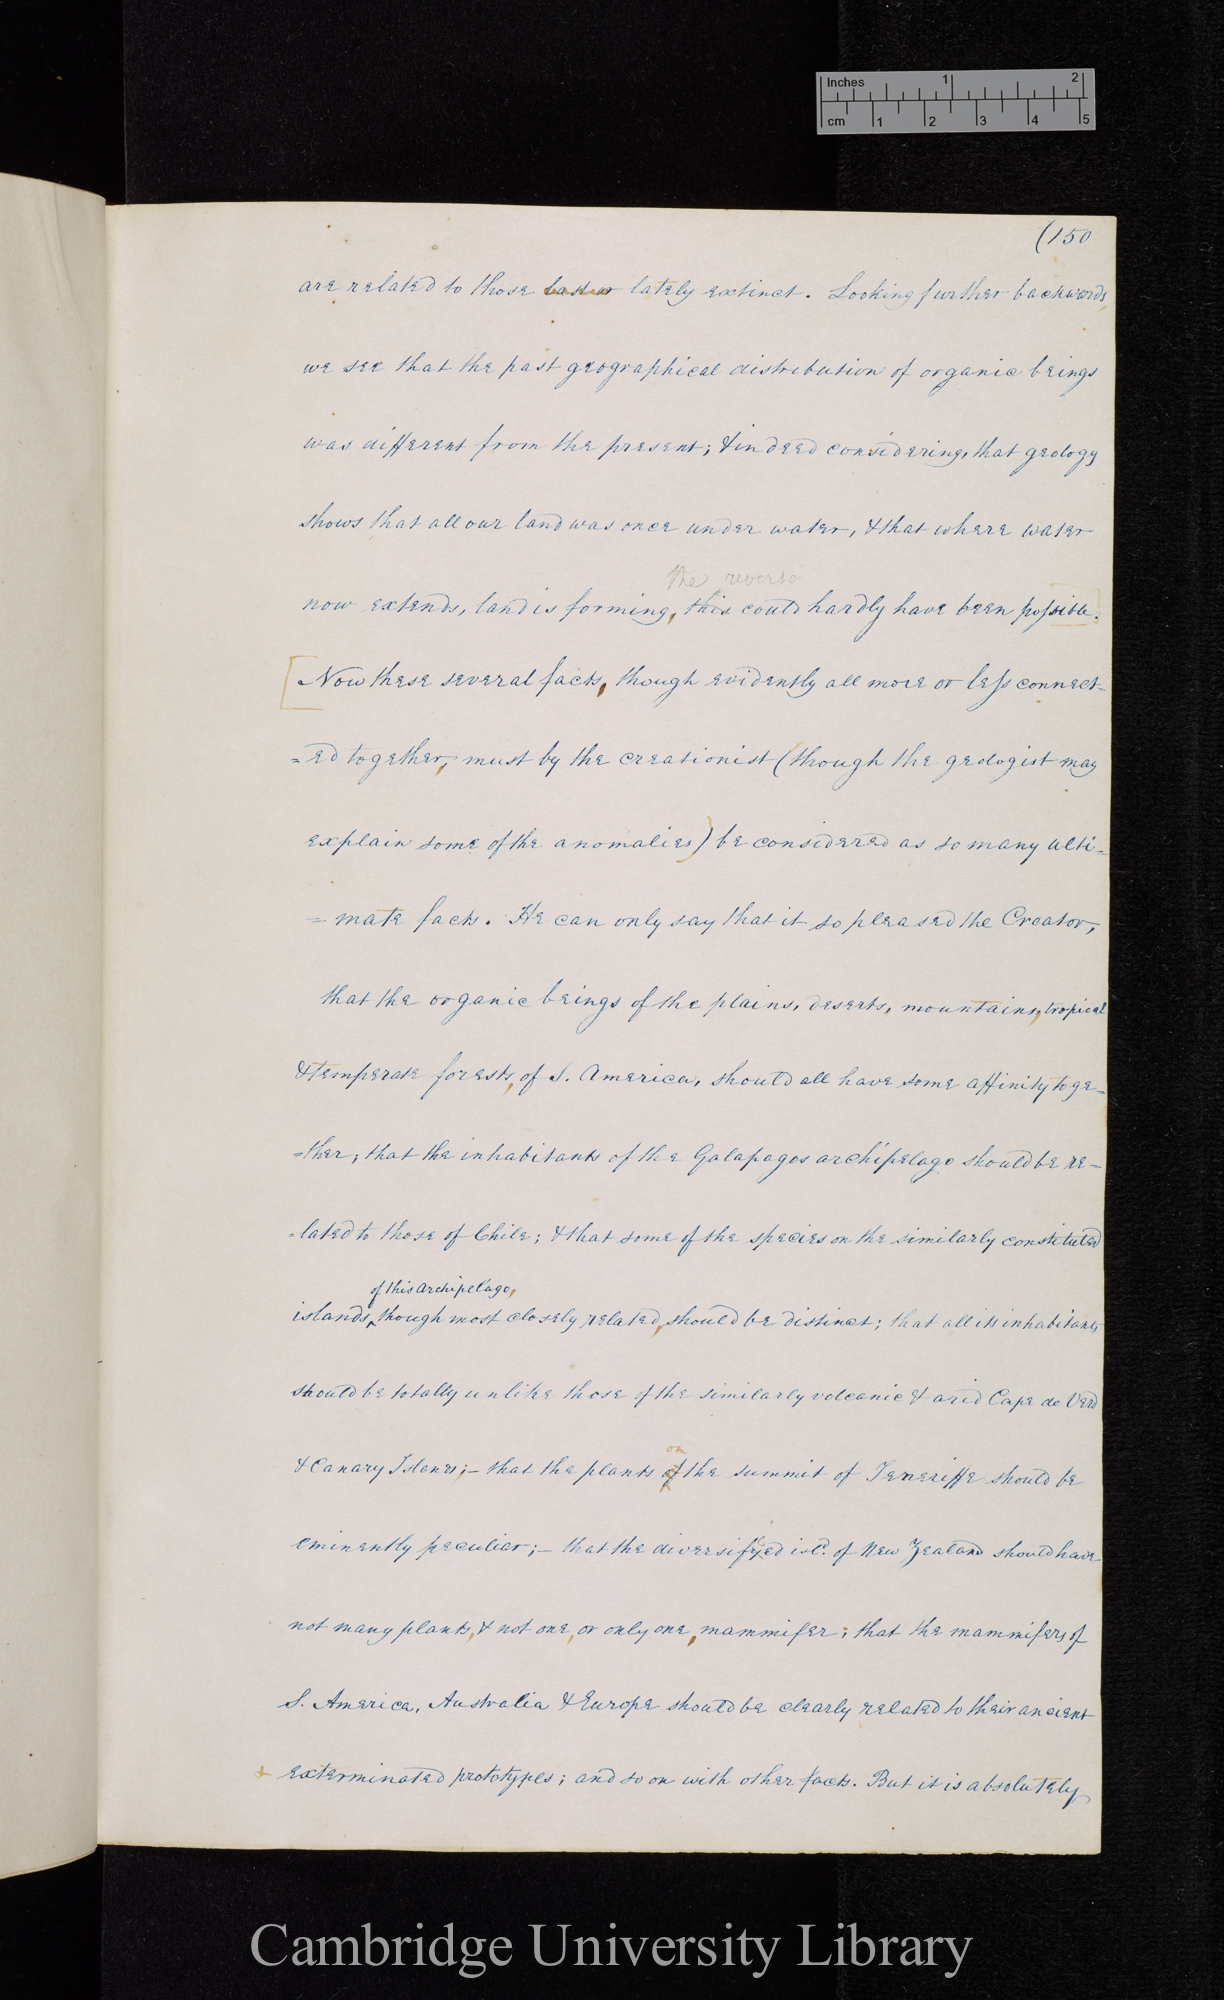 Inches 1 2
cm 1 2 3 4 5
(150
are related to those lately extinct. Looking further backwards
we see that the past geographical distribution of organic beings
was different from the present; & indeed considering, that geology
shows that all our land was once under water, & that where water
the reverse
now extends, land is forming, this could hardly have been possible.
[Now these several facts, though evidently all more or less connect-
=ed together, must by the creationist (though the geologist may
explain some of the anomalies) be considered as so many ulti=
=mate facts. He can only say that it so pleased the Creator,
that the organic beings of the plains, deserts, mountains, tropical
& temperate forests, of S. America, should all have some affinity toge-
=ther; that the inhabitants of the Galapagos archipelago should be re-
-lated to those of Chile; & that some of the species on the similarly constituted
of this Archipelago,
islands, though most closely related, should be distinct; that all its inhabitants
should be totally unlike those of the similarly volcanic & arid Cape de Verd
on
& Canary Islands;- that the plants of the summit of Teneriffe should be
eminently peculiar;- that the diversifyed isld. of New Zealand should have
not many plants, & not one, or only one, mammifer; that the mammifers of
S. America, Australia & Europe should be clearly related to their ancient
& exterminated prototypes; and so on with other facts. But it is absolutely
Cambridge University Library